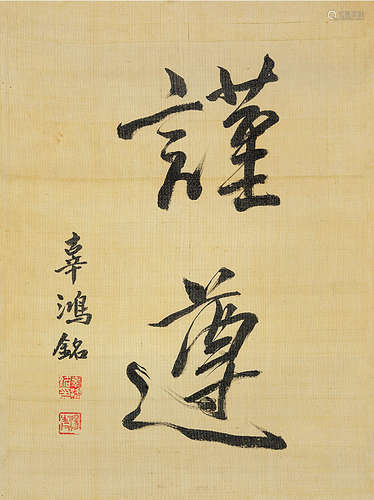 謹遵
辜鴻銘